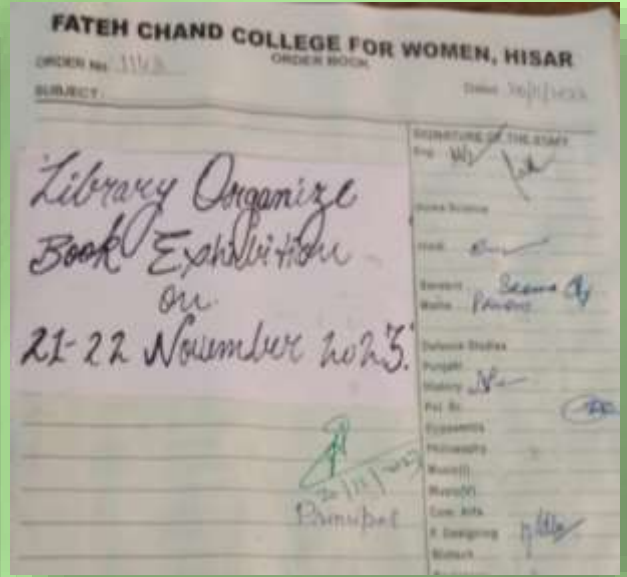 FATEH CHAND COLLEGE FOR WOMEN, HISAR
ORDER BOOK
ORDER No. 1143
Dated 20/11/2023
SUBJECT:
Library Organize
Book Exhibition
on
21-22 November 2023.
20/11/2023
Principal
SIGNATURE OF THE STAFF
Eng.
Home Science
Hindi
Sanskrit Seema
Maths
Defence Studies
Punjabi
History
Pol. Sc.
Economics
Philosophy
Music(I)
Music(V)
Com. Arts
F. Designing
Biotech